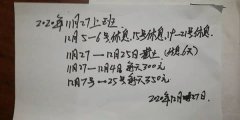 2020年11月27上班
12月5—6号休息,15号休息,19—21号休息,
11月27—12月25日截止(休息6天)
11月27—12月4日每天300元
12月7号—25号每天350元
2020年12月27日.